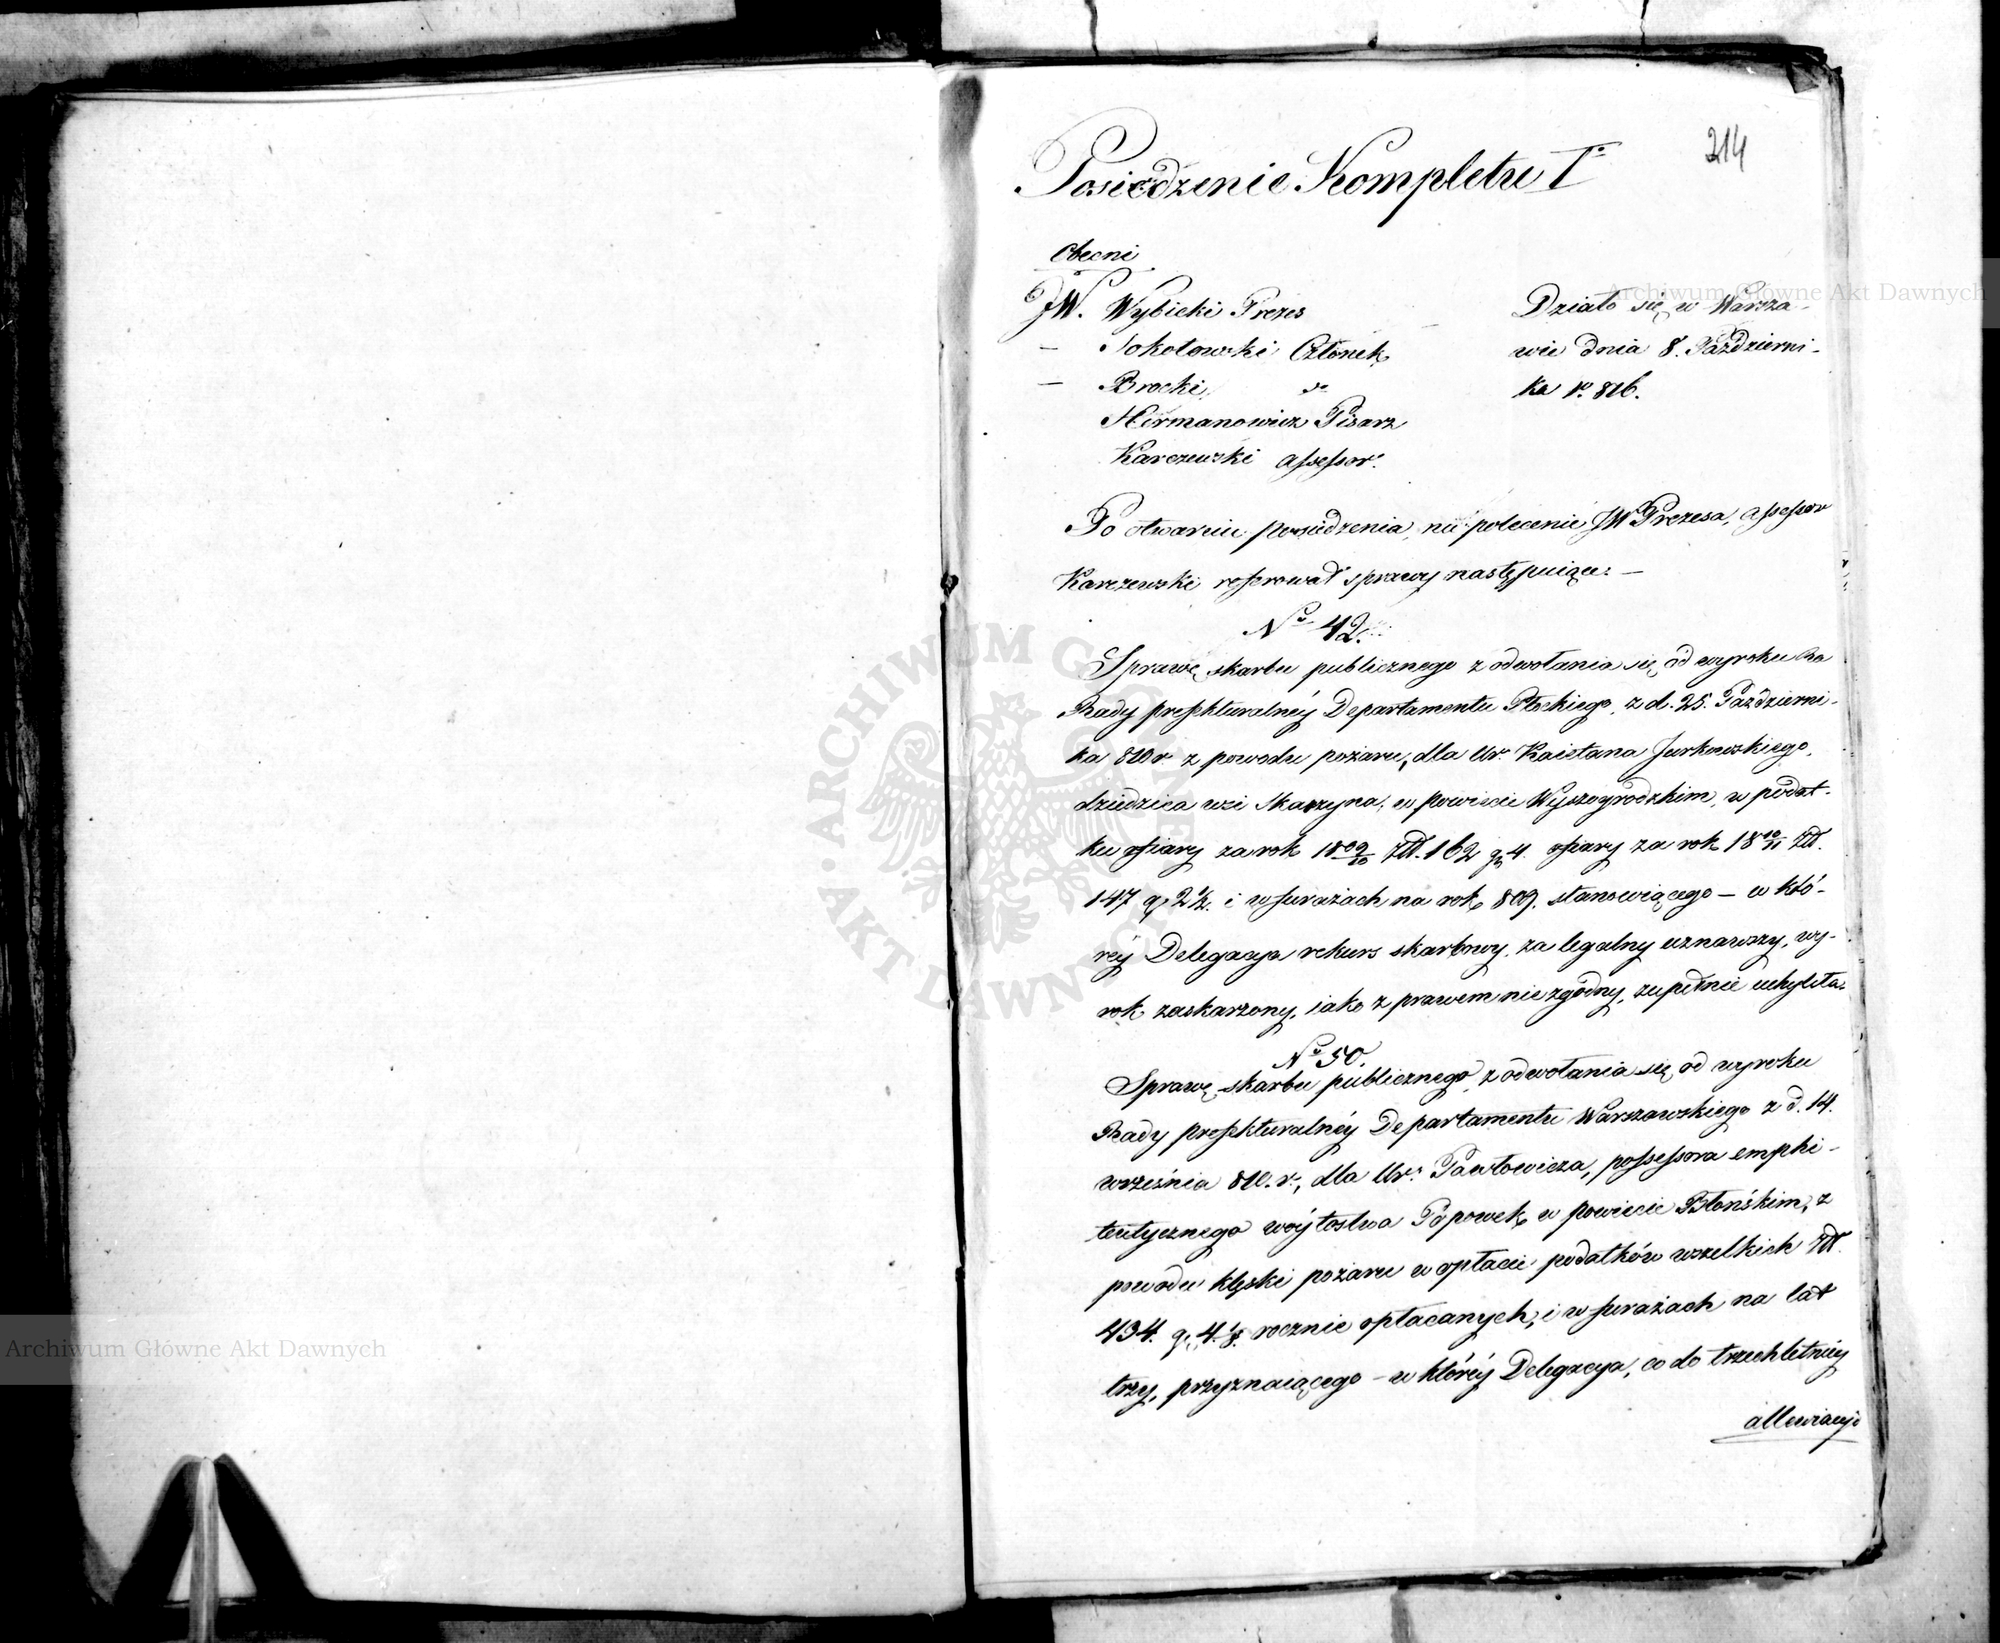 214
Posiedzenie Kompletu I°
Obecni
JW. Wybicki Prezes
— Sokołowski Członek
— Brocki do
Hermanowicz Pisarz
Karczewski assessor.
Działo się w Warsza-
wie dnia 8. Październi-
ka r. 816.
Po otwarciu posiedzenia, na polecenie JW Prezesa, assessor
Karczewski referował sprawy następuiące: —
No 42.
Sprawę skarbu publicznego z odwołania się od wyroku Ra
Rady prefekturalnéy Departamentu Płockiego, z d. 25. Październi-
ka 810 r. z powodu pożaru, dla Ur. Kaietana Jurkowskiego,
dziedzica wsi Skarzyna, w powiecie Wyszogrodzkim, w podat-
ku ofiary za rok 1809/10 Złt. 162 gr 4. ofiary za rok 1810/11 Złt.
147 gr 2 1/2. i w furażach na rok 809. stanowiącego — w któ-
réy Delegacya rekurs skarbowy, za legalny uznawszy, wy-
rok zaskarzony, iako z prawem niezgodny, zupełnie uchyliła.
No 50.
Sprawę skarbu publicznego, z odwołania się od wyroku
Rady prefekturalnéy Departamentu Warszawskiego z d. 14.
września 810. r., dla Ur. Pawłowicza, possessora emphi-
teutycznego wóytostwa Popowek, w powiecie Błońskim, z
powodu klęski pożaru w opłacie podatków wszelkich Złt.
434. gr. 4. 1/8. rocznie opłacanych, i w furażach na lat
trzy, przyznaiącego — w któréy Delegacya, co do trzechletniéy
allewiacyi
Archiwum Główne Akt Dawnych
Archiwum Główne Akt Dawnych
ARCHIWUM GŁÓWNE AKT DAWNYCH